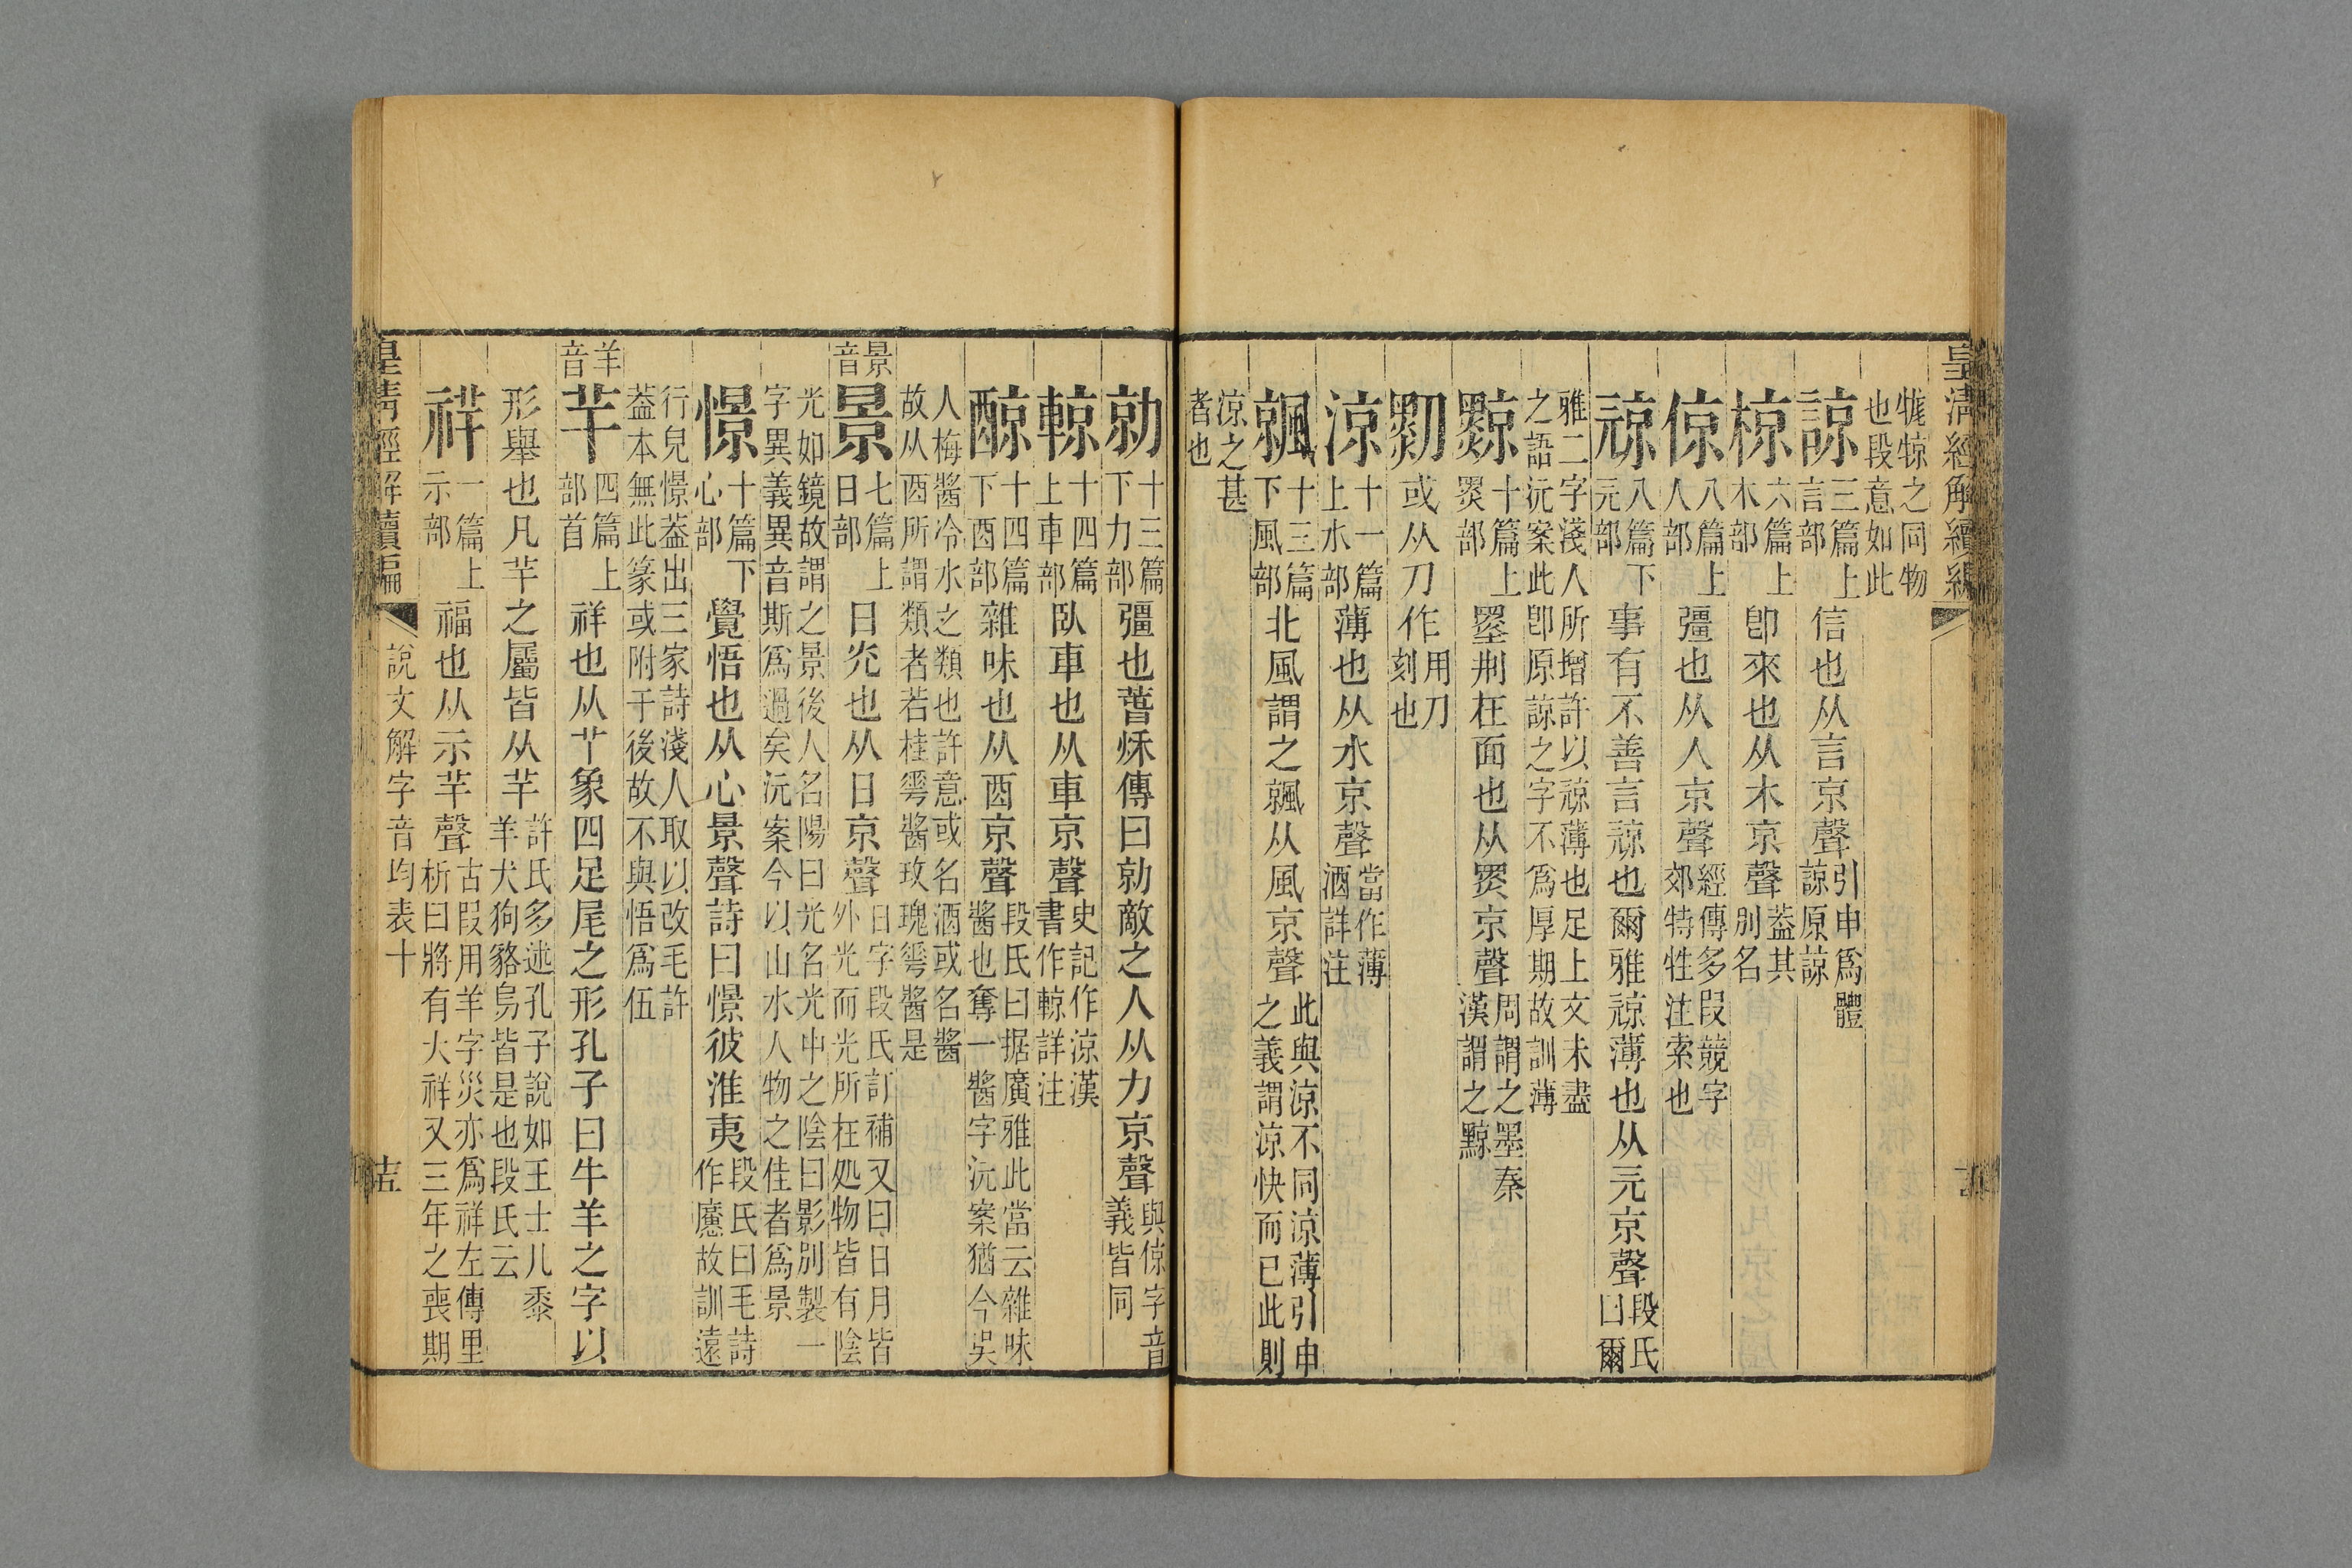 皇清經解續編
牻犉之同物
也段意如此
諒 三篇上言部 信也从言京聲 引申爲體諒原諒
椋 六篇上木部 卽來也从木京聲 葢其別名
倞 八篇上人部 彊也从人京聲 經傳多叚競字郊特牲注索也
𠅤 八篇下旡部 事有不善言𠅤也爾雅𠅤薄也从旡京聲 段氏曰爾
雅二字淺人所增許以𠅤薄也足上文未盡
之語沅案此卽原諒之字不爲厚期故訓薄
黥 十篇上黑部 墨刑在面也从黑京聲 周謂之墨秦漢謂之黥
剠 或从刀作 用刀刻也
涼 十一篇上水部 薄也从水京聲 當作薄酒詳注
䬅 十三篇下風部 北風謂之䬅从風京聲 此與涼不同涼薄引申之義謂涼快而已此則
涼之甚
者也
勍 十三篇下力部 彊也萅秌傳曰勍敵之人从力京聲 與倞字音義皆同
輬 十四篇上車部 臥車也从車京聲 史記作涼漢書作輬詳注
醇 十四篇下酉部 雜味也从酉京聲 段氏曰据廣雅此當云雜味醬也奪一醬字沅案猶今吳
人梅醬冷水之類也許意或名酒或名醬
故从酉所謂類者若桂䔢醬玫瑰䔢醬是
景音
景 七篇上日部 日光也从日京聲 日字段氏訂補又曰日月皆外光而光所在処物皆有陰
光如鏡故謂之景後人名陽曰光名光中之陰曰影別製一
字異義異音斯爲過矣沅案今以山水人物之佳者爲景
憬 十篇下心部 覺悟也从心景聲詩曰憬彼淮夷 段氏曰毛詩作應故訓遠
行皃憬葢出三家詩淺人取以改毛許
葢本無此篆或附于後故不與悟爲伍
羊音
羊 四篇上部首 祥也从𦫳象四足尾之形孔子曰牛羊之字以
形舉也凡羊之屬皆从羊 許氏多述孔子說如王士儿黍羊犬狗貉烏皆是也段氏云
祥 一篇上示部 福也从示羊聲 古叚用羊字災亦爲祥左傳里析曰將有大祥又三年之喪期
皇清經解續編 說文解字音均表十